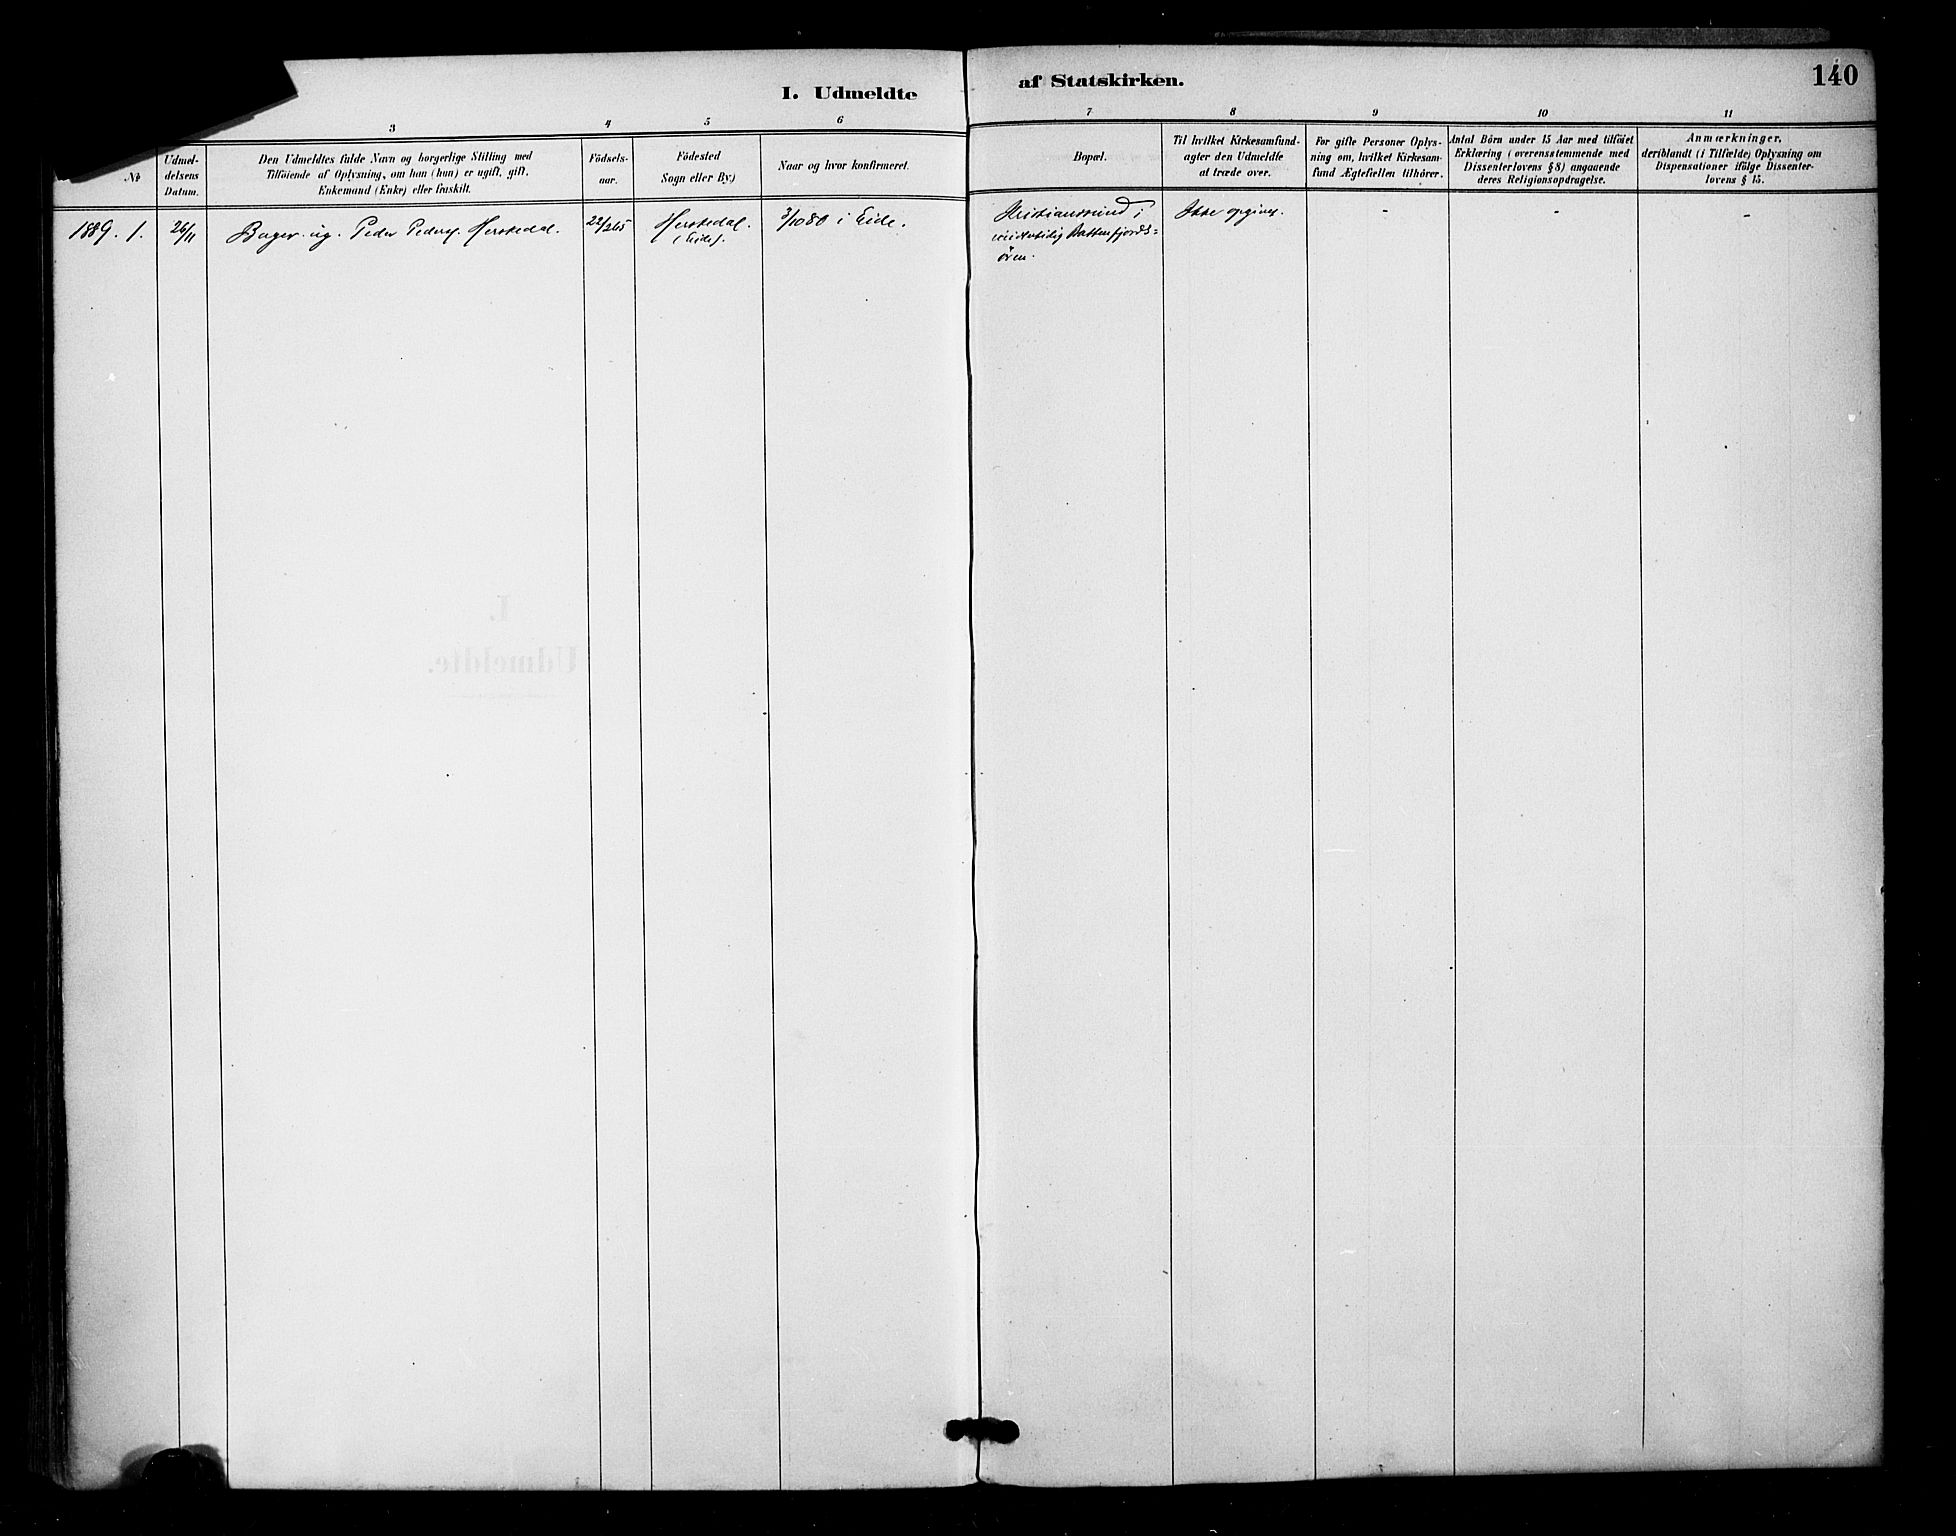 I. Udmeldte af Statskirken.
140
3 4 5 6 7 8 9 10 11
No
Udmel-
delsens
Datum.
Den Udmeldtes fulde Navn og borgerlige Stilling med
Tilföiende af Oplysning, om han (hun) er ugift, gift,
Enkemand (Enke) eller fraskilt.
Födsels-
aar.
Födested
Sogn eller By)
Naar og hvor konfirmeret.
Bopæl.
Til hvilket Kirkesamfund-
agter den Udmeldte
at træde over.
For gifte Personer Oplys-
ning om, hvilket Kirkesam-
fund Ægtefællen tilhörer.
Antal Börn under 15 Aar med tilföiet
Erklæring (overensstemmende med
Dissenterlovens § 8) angaaende
deres Religionsopdragelse.
Anmærkninger,
deriblandt (i Tilfælde) Oplysning om
Dispensationer ifölge Dissenter-
lovens § 15.
1889. 1. 26/11 Bager. ug. Peder Peders. Herskedal. 22/265 Herskedal. 3/1080 i Eide. Kristianssund i Ikke opgivet. - - -
(Eide). midlertidig Battenfjords=
ören.
I.
Udmeldte.